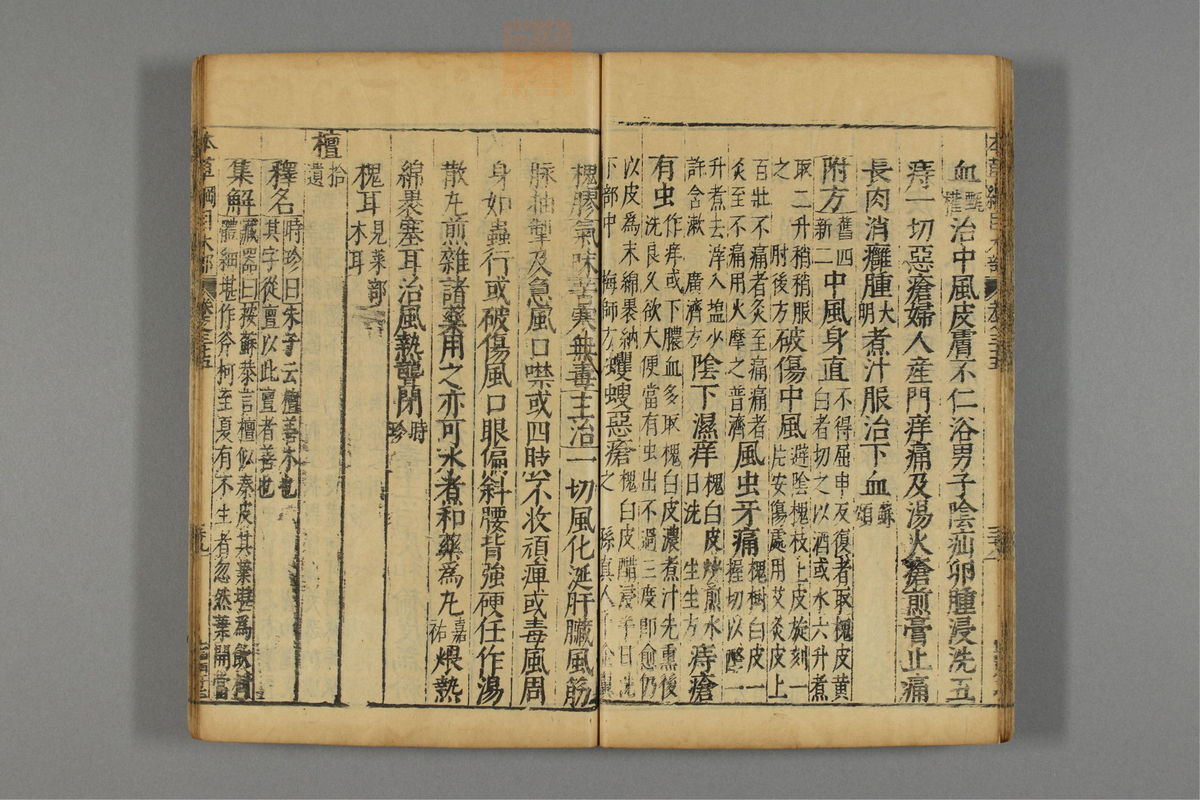 血甄權治中風皮膚不仁浴男子陰疝卵腫浸洗五
痔一切惡瘡婦人産門痒痛及湯火瘡煎膏止痛
長肉消癰腫大明煮汁服治下血蘇頌
附方舊四新二中風身直不得屈申反復者取槐皮黃白者切之以酒或水六升煮
取二升稍稍服之 肘後方破傷中風避陰槐枝上皮旋刻一片安傷處用艾灸皮上
百壯不痛者灸至痛痛者灸至不痛用火摩之普濟風虫牙痛槐樹白皮一握切以酪一
升煮去滓入塩少許含漱 廣濟方陰下濕痒槐白皮炒煎水日洗 生生方痔瘡
有虫作痒或下膿血多取槐白皮濃煮汁先熏後洗良久欲大便當有虫出不過三度即愈仍
以皮爲末綿裹納下部中 梅師方蠼螋惡瘡槐白皮醋浸半日洗之 孫真人
槐膠氣味苦寒無毒主治一切風化涎肝臟風筋
脉抽掣及急風口噤或四肢不收頑痺或毒風周
身如蟲行或破傷風口眼偏斜腰背強硬任作湯
散丸煎雜諸藥用之亦可水煮和藥爲丸嘉祐煨熱
綿裹塞耳治風熱聾閉時珍
槐耳見菜部木耳
檀拾遺
釋名時珍曰朱子云檀善木也其字從亶以此亶者善也
集解藏器曰按蘇恭言檀似秦皮其葉堪爲飲樹體細堪作斧柯至夏有不生者忽然葉開當
本草綱目木部 卷之三五